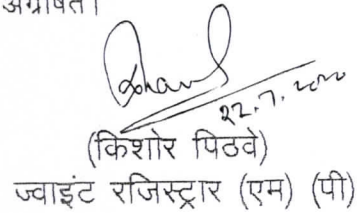 अग्रेषित।
22.7.2020
(किशोर पिठवे)
ज्वाइंट रजिस्ट्रार (एम) (पी)